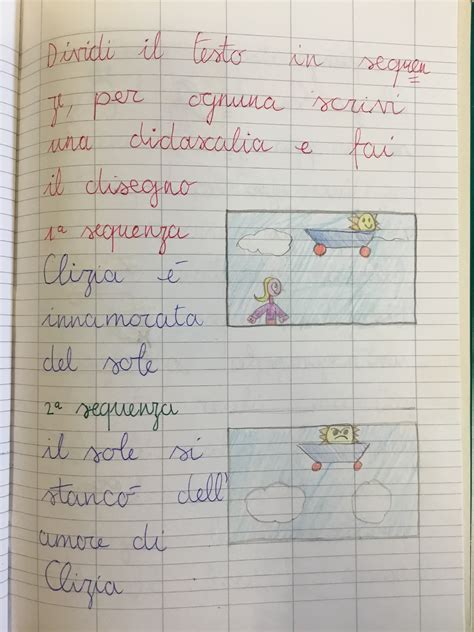 Dividi il testo in sequen
ze, per ognuna scrivi
una didascalia e fai
il disegno
1ª sequenza
Clizia é
innamorata
del sole
2ª sequenza
il sole si
stancó dell'
amore di
Clizia